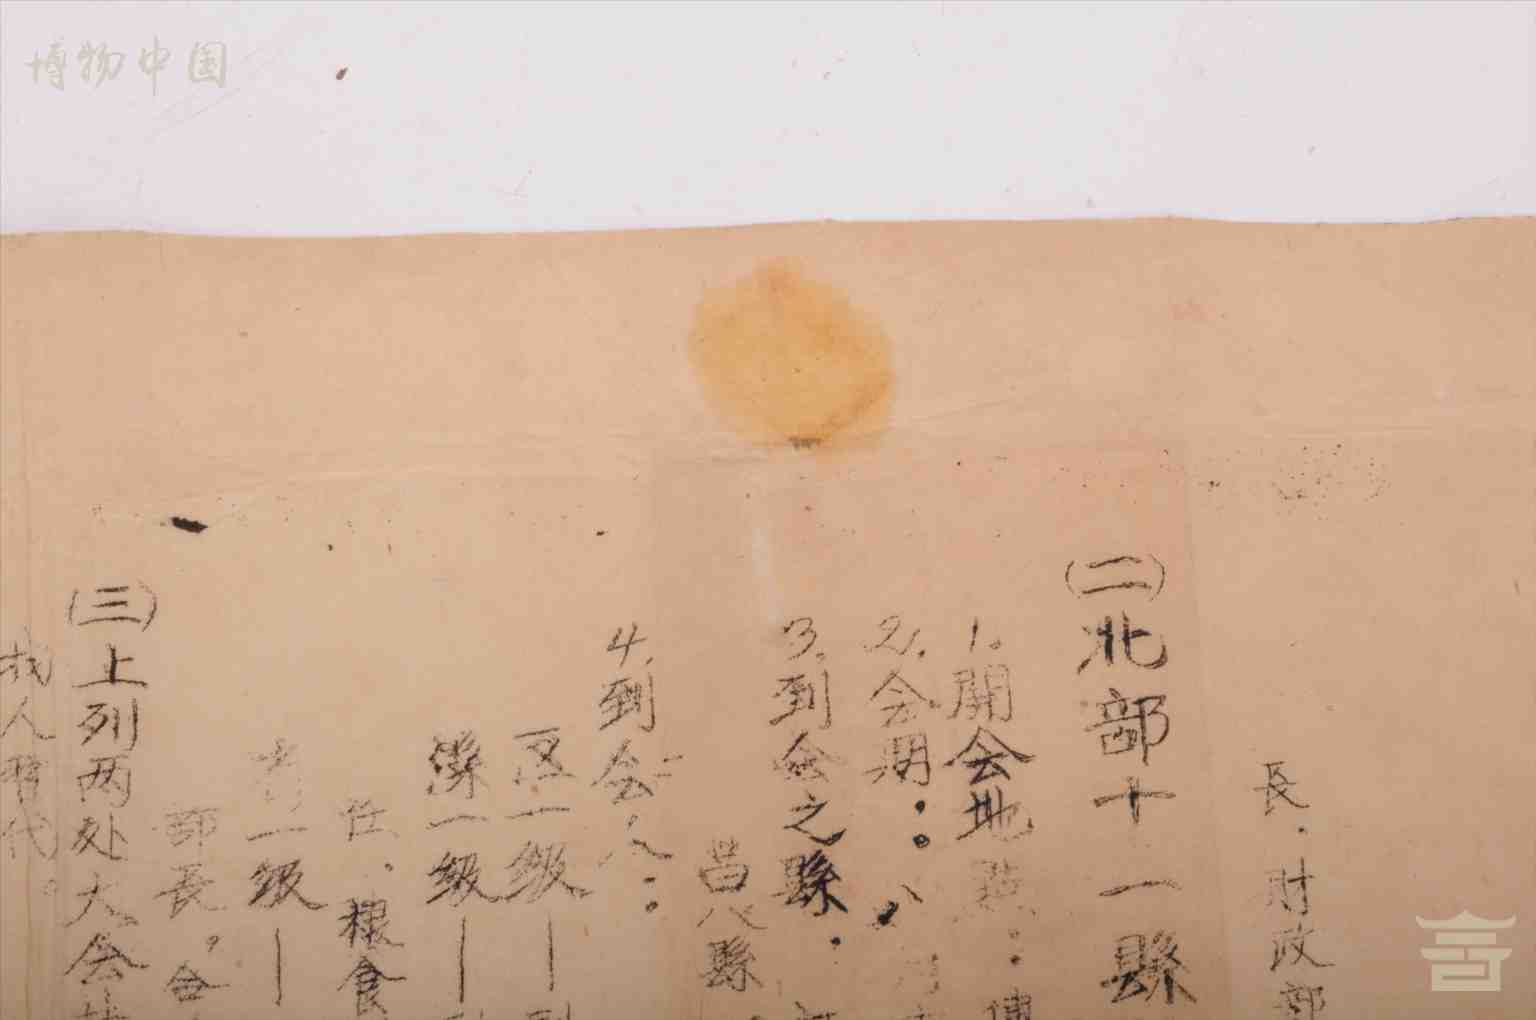 博物中国
長.財政部
(二)北部十一縣
1.開会地點:
2.会期:八月
3.到会之縣.
昌八縣.
4.到会人:
区一级—到
縣一级—
任.粮食
省一级—
部長.会
(三)上列两处大会
找人暫代。